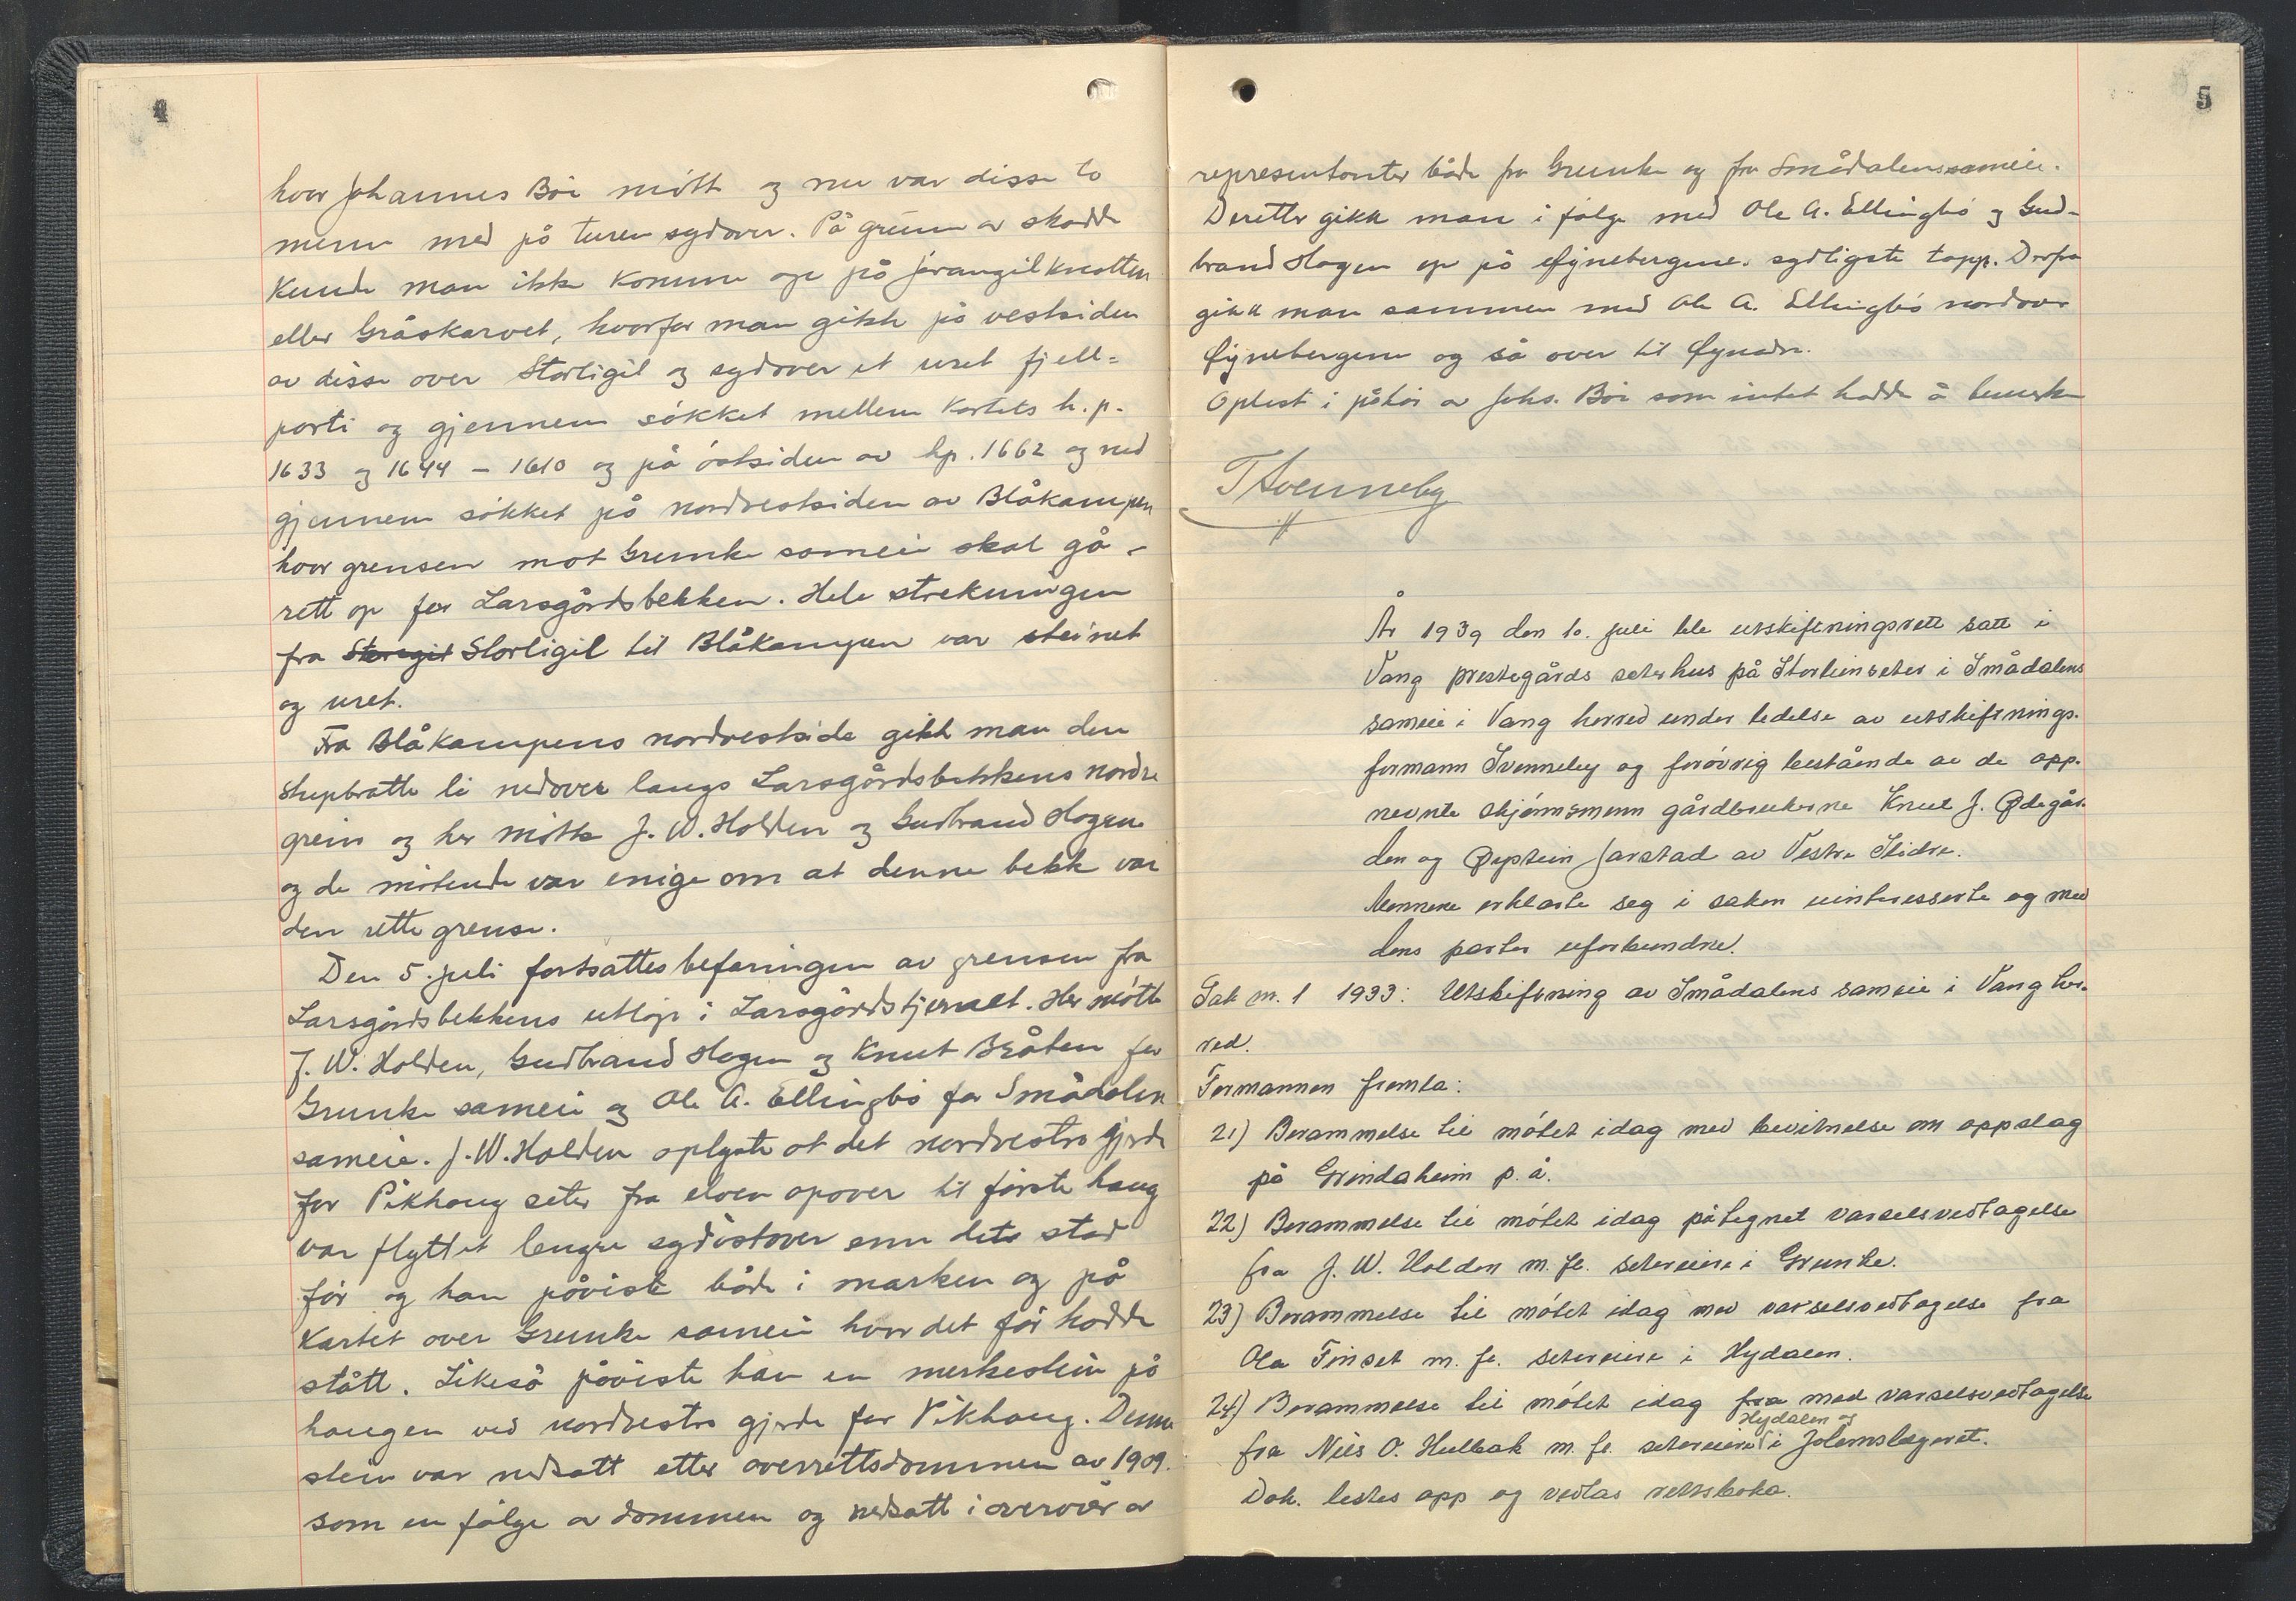 4
hvor Johannes Böe mötte og nu var disse to
menn med på turen sydover. På grunn av skodde
kunde man ikke komme op på Jørangilknatten
eller Gråskarvet, hvorfor man gikk på vestsiden
av disse over Storligil og sydover et uret fjell-
parti og gjennem søkket mellem kartets h.p.
1633 og 1644 – 1610 og på östsiden av hp. 1662 og ned
gjennem søkket på nordvestsiden av Blåkampen
hvor grensen mot Grunke sameie skal gå
rett op for Larsgårdsbekken. Hele strekningen
fra Storegil Storligil til Blåkampen var steinet
og uret.
Fra Blåkampens nordvestside gikk man den
stupbratte li nedover langs Larsgårdsbekkens nordre
grein og her mötte J. W. Holden og Gudbrand Hagen
og de mötende var enige om at denne bekk var
den rette grense.
Den 5. juli fortsattes befaringen av grensen fra
Larsgårdsbekkens utlöp i Larsgårdstjernet. Her mötte
J. W. Holden, Gudbrand Hagen og Knut Bråten for
Grunke sameie og Ole A. Ellingbö for Smådalen
sameie. J. W. Holden oplyste at det nordvestre gjerde
for Pikhaug seter fra elven opover til förste haug
var flyttet lengre sydöstover enn det stod
för og han påviste både i marken og på
kartet over Grunke sameie hvor det för hadde
stått. Likeså påviste han en merkestein på
haugen ved nordvestre gjerde for Pikhaug. Denne
stein var nedsatt etter overrettsdommen av 1909.
som en fölge av dommen og nedsatt i overvær av
5
representanter både fra Grunke og fra Smådalens sameie.
Deretter gikk man i fölge med Ole A. Ellingbö og Gud-
brand Hagen op på Øynebergene. sydligste topp. Derfra
gikk man sammen med Ole A. Ellingbö nordover
Øynebergene og så over til Øynadn.
Oplest i påhör av Johs. Böe som intet hadde å bemerke
T Svenneby
År 1939 den 10. juli ble utskiftningsrett satt i
Vang prestegårds seterhus på Storlienseter i Smådalens
sameie i Vang herred under ledelse av utskiftnings-
formann Svenneby og forövrig bestående av de opp-
nevnte skjönnsmenn gårdbrukerne Knut J. Ødegår-
den og Øystein Jarstad av Vestre Slidre.
Mennene erklærte seg i saken uinteresserte og med
dens parter uforbundne.
Sak nr. 1 1933: Utskiftning av Smådalens sameie i Vang her-
red.
Formannen fremla:
21) Berammelse til mötet idag med bevitnelse om oppslag
på Grindaheim p. å.
22) Berammelse til mötet idag påtegnet varselsvedtagelse
fra J. W. Holden m. fl. setereiere i Grunke.
23) Berammelse til mötet idag med varselsvedtagelse fra
Ola Finset m. fl. setereiere i Hydalen.
24) Berammelse til mötet idag fra med varselsvedtagelse
Hydalen og
fra Nils O. Hulbak m. fl. setereiere i Jolemslægeret.
Dok. lestes opp og vedlas rettsboka.